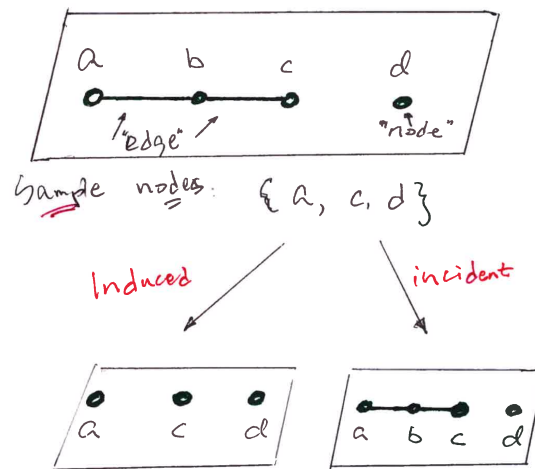 a b c d
"edge" "node"
Sample nodes: { a, c, d }
Induced incident
a c d
a b c d